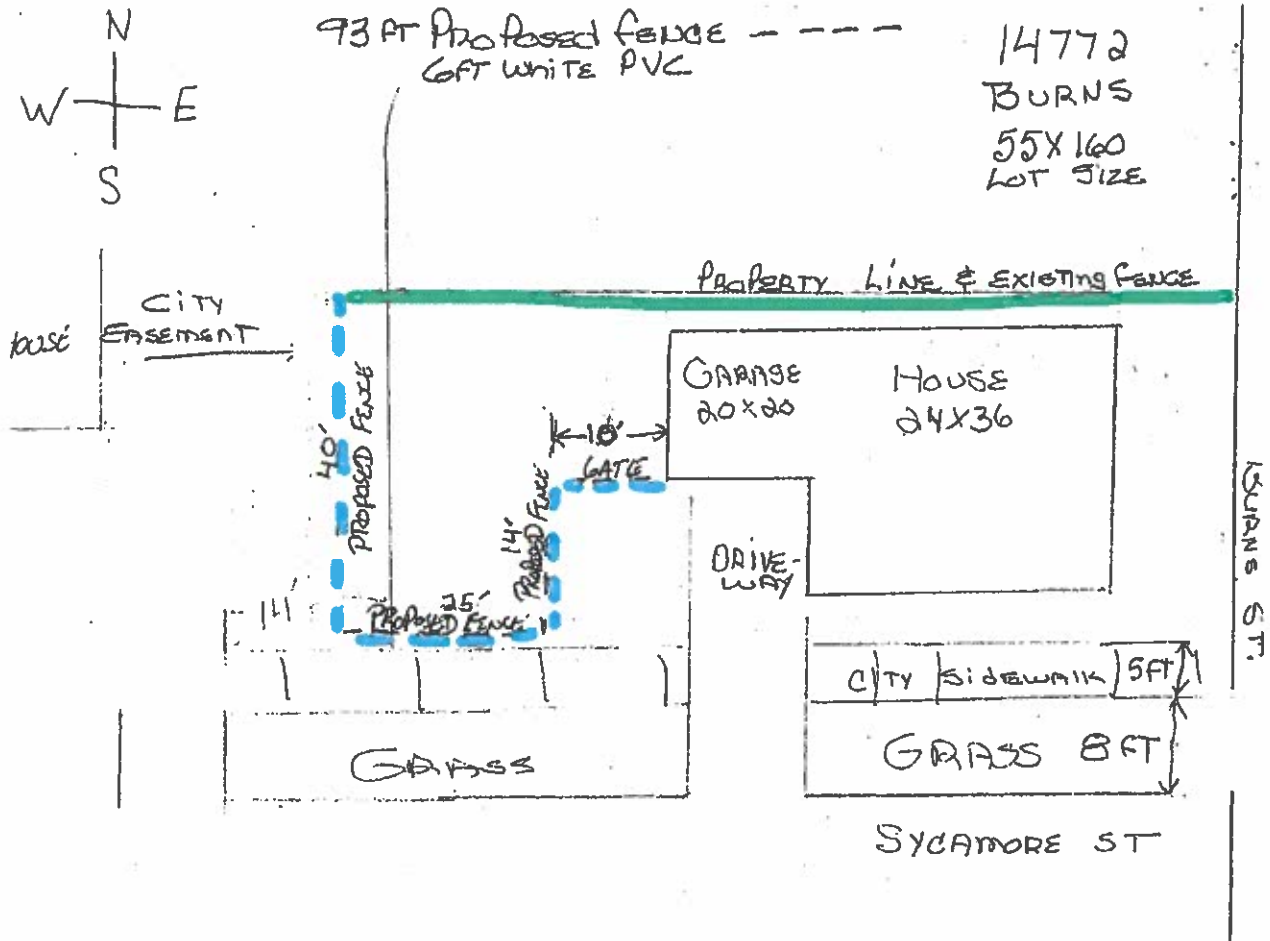 N
W E
S
93 FT PROPOSED FENCE - - - -
6FT WHITE PVC
14772
BURNS
55X160
LOT SIZE
PROPERTY LINE & EXISTING FENCE
CITY
EASEMENT
GARAGE
20X20
HOUSE
24X36
40'
PROPOSED FENCE
GATE
14'
PROPOSED FENCE
25'
PROPOSED FENCE
DRIVE-
WAY
BURNS ST.
CITY SIDEWALK 5FT
GRASS
GRASS 8FT
SYCAMORE ST